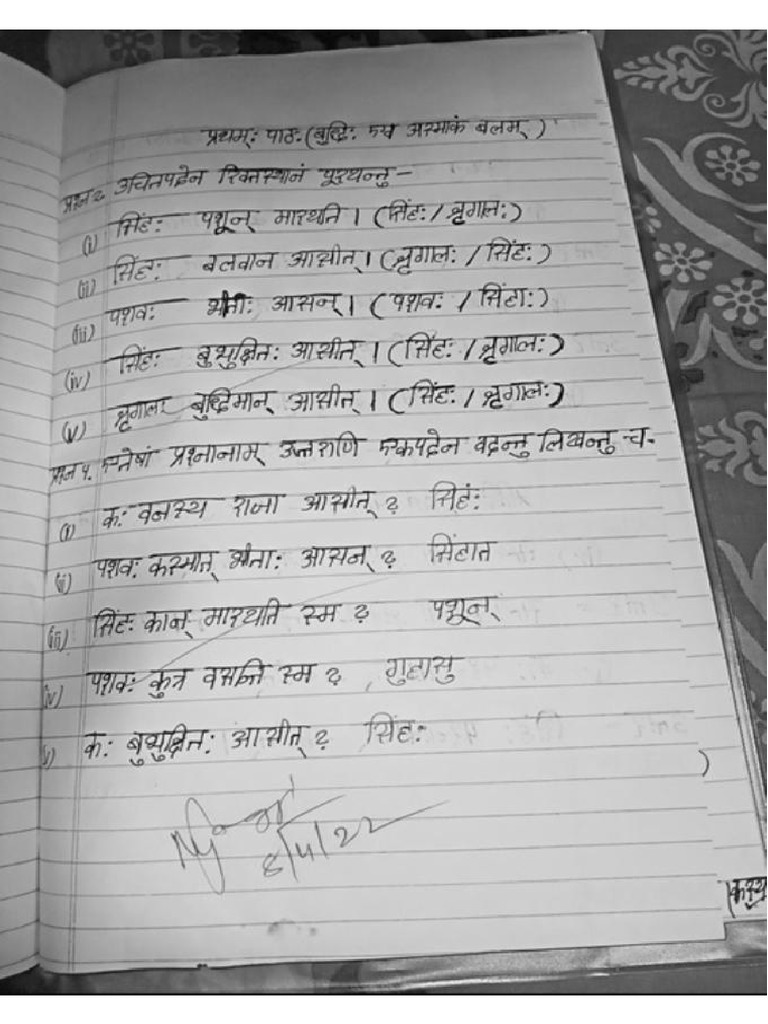 प्रथमः पाठः (बुद्धिः एव अस्माकं बलम्)
प्रश्न 2. उचितपदेन रिक्तस्थानं पूरयन्तु -
(i) सिंहः पशून् मारयति । (सिंहः / शृगालः)
(ii) सिंहः बलवान आसीत् । (शृगालः / सिंहः)
(iii) पशवः भीताः आसन् । (पशवः / सिंहाः)
(iv) सिंहः बुभुक्षितः आसीत् । (सिंहः / शृगालः)
(v) शृगालः बुद्धिमान् आसीत् । (सिंहः / शृगालः)
प्रश्न 4. एतेषां प्रश्नानाम् उत्तराणि एकपदेन वदन्तु लिखन्तु च.
(i) कः वनस्य राजा आसीत् ? सिहंः
(ii) पशवः कस्मात् भीताः आसन् ? सिंहात
(iii) सिंहः कान् मारयति स्म ? पशून्
(iv) पशवः कुत्र वसन्ति स्म ? गुहासु
(v) कः बुभुक्षितः आसीत् ? सिंहः
8/4/22